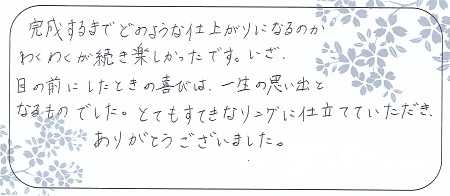 完成するまでどのような仕上がりになるのか
わくわくが続き楽しかったです。いざ、
目の前にしたときの喜びは、一生の思い出と
なるものでした。とてもすてきなリングに仕立てていただき、
ありがとうございました。